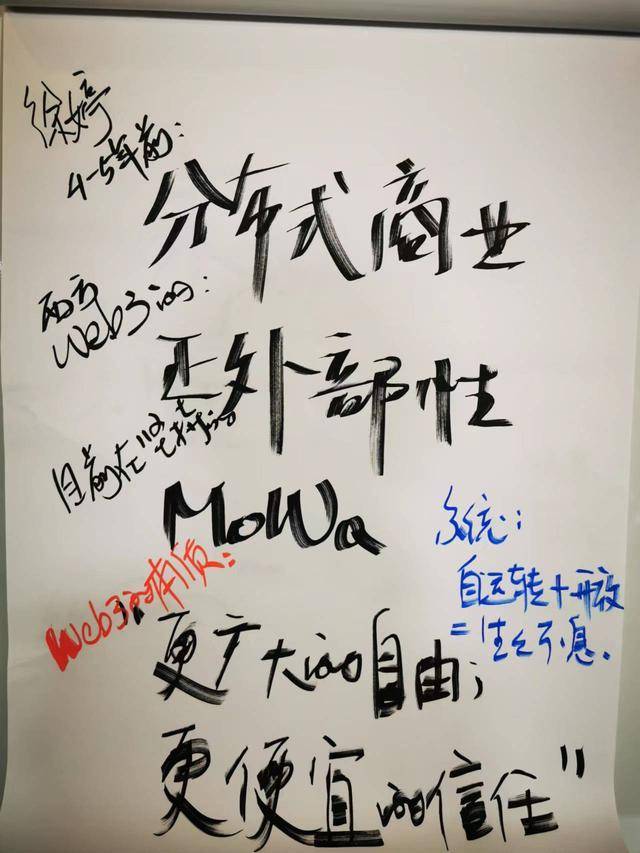 徐婷
4-5年前:
分布式商业
西方
Web3的:
正外部性
目前在
MoWa
系统:
自运转+开放
=生生不息。
Web3的本质:
更广大的自由;
更便宜的信任"